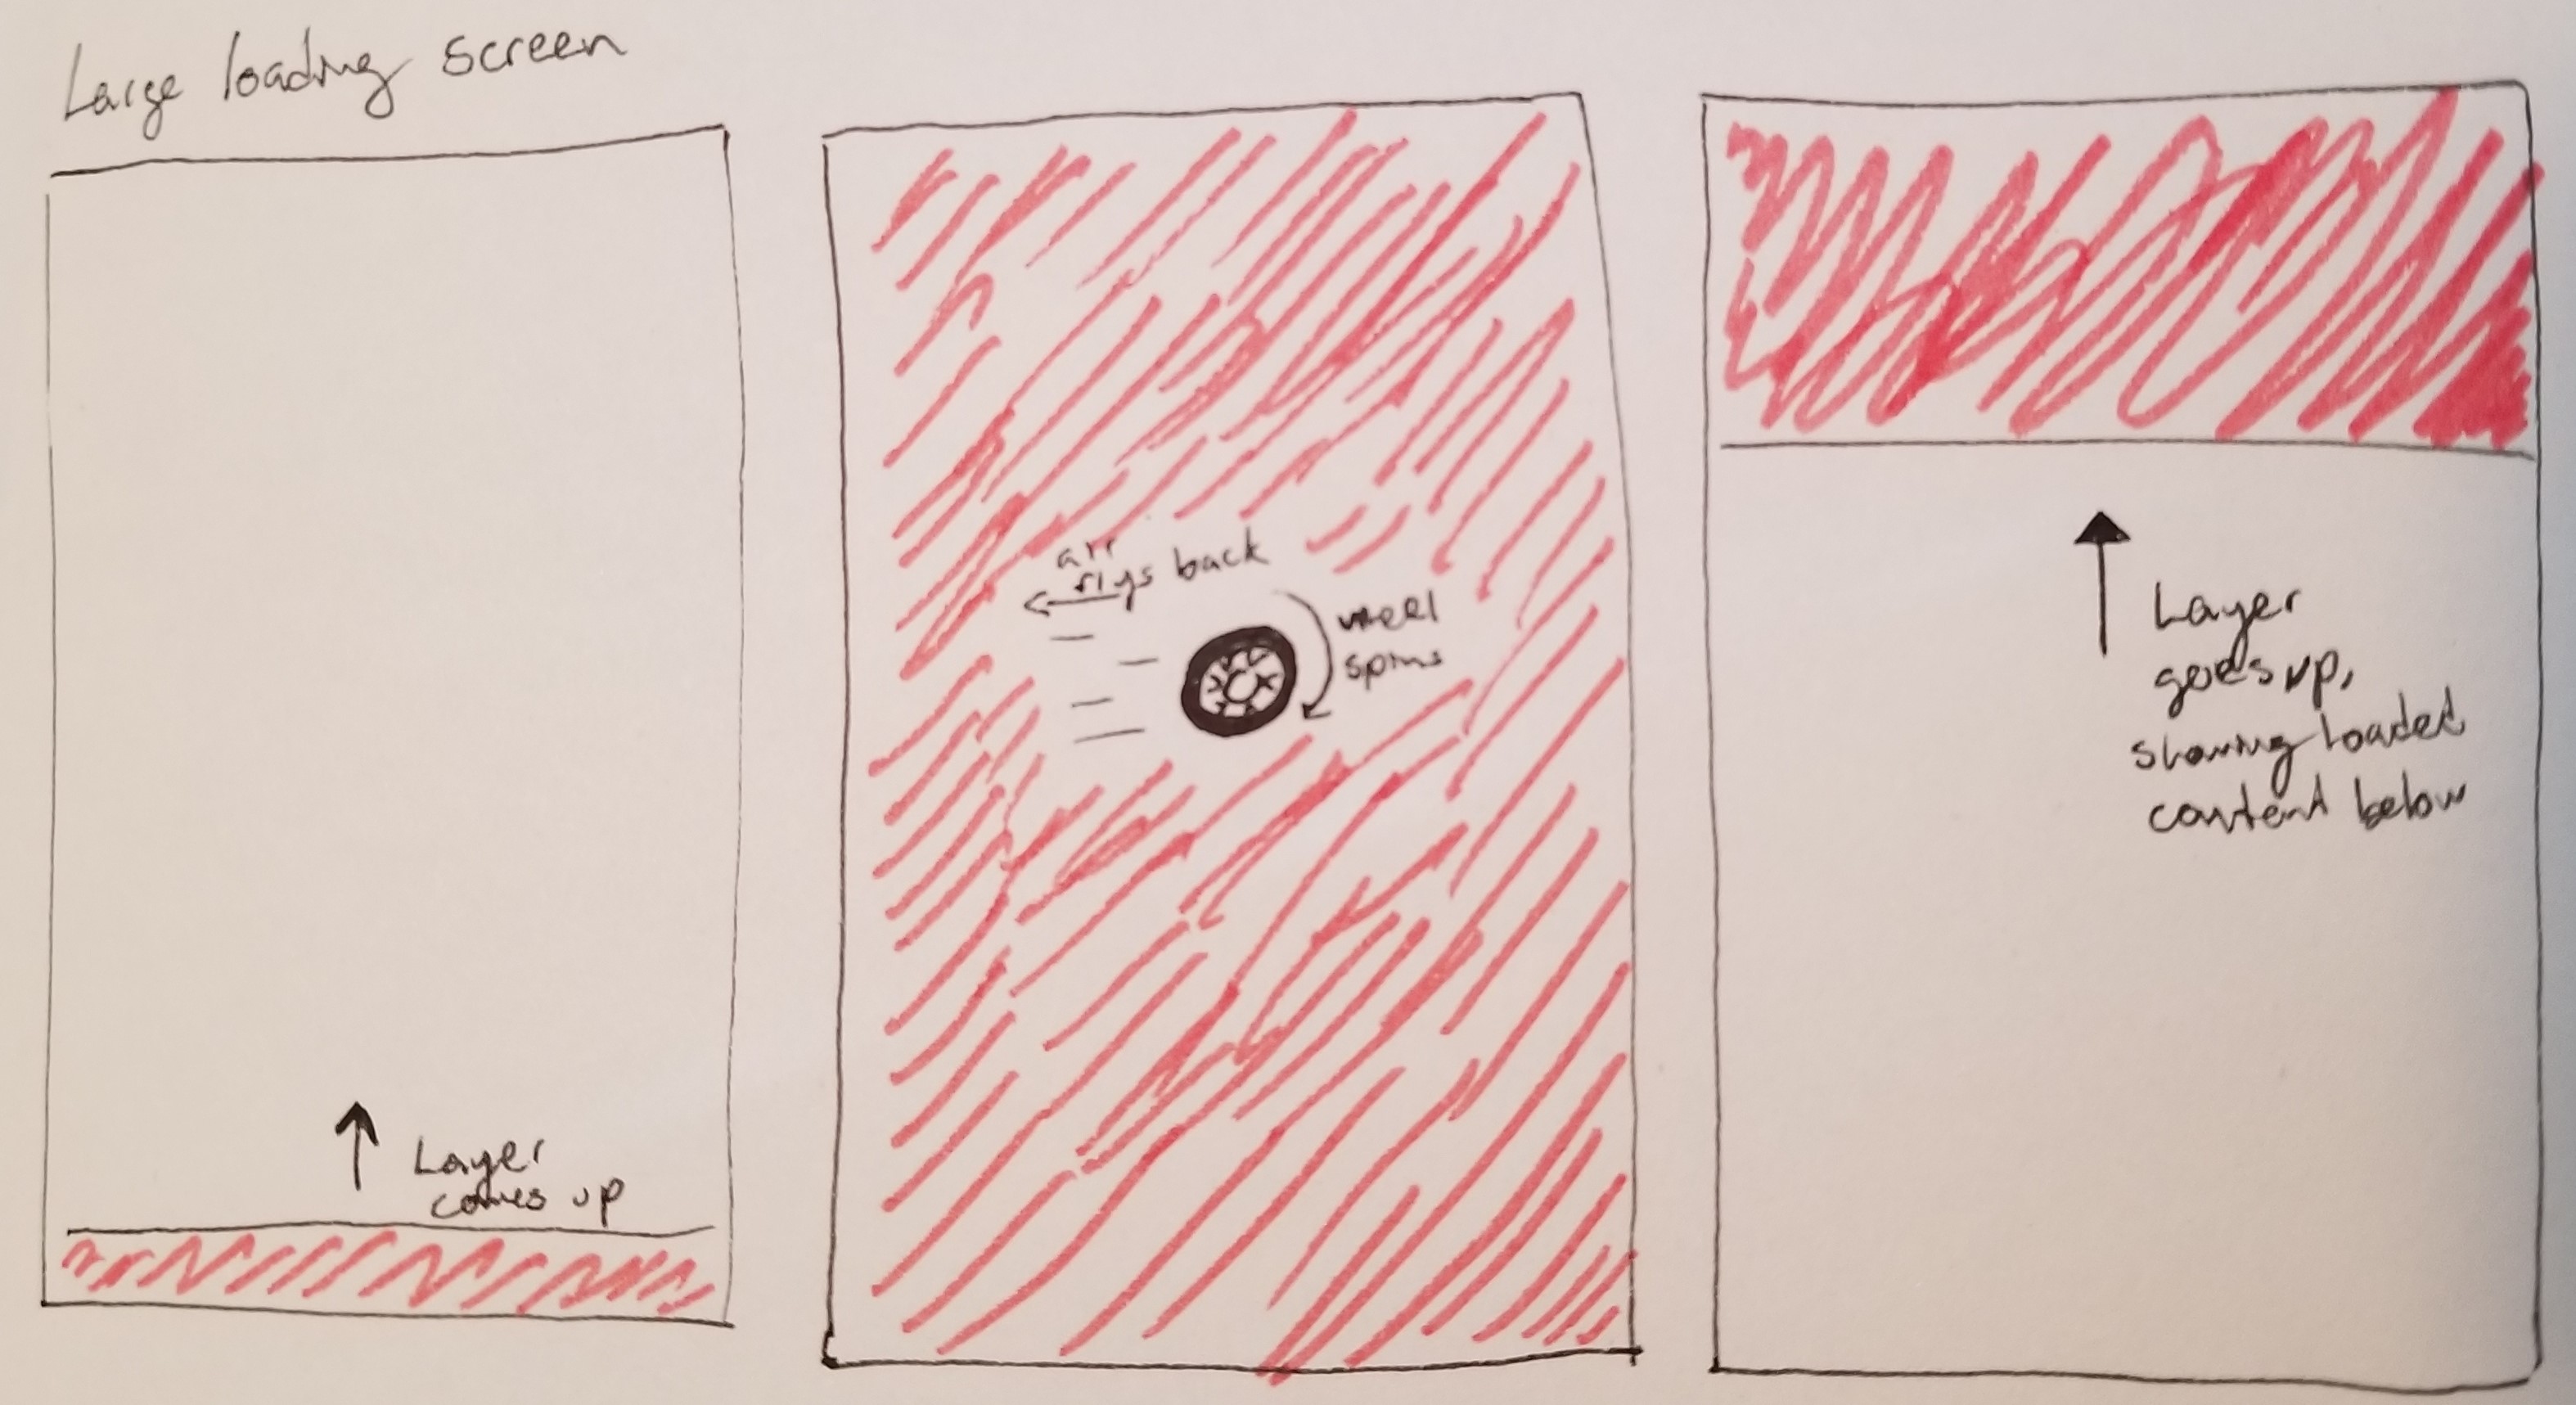 Large loading screen
Layer
comes up
air
flys back
wheel
spins
Layer
goes up,
showing loaded
content below